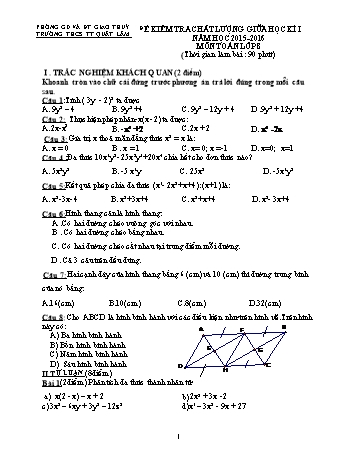 PHÒNG GD VÀ ĐT GIAO THUỶ
TRƯỜNG THCS TT QUẤT LÂM
ĐỀ KIỂM TRA CHẤT LƯỢNG GIỮA HỌC KÌ I
NĂM HỌC 2015-2016
MÔN TOÁN LỚP 8
(Thời gian làm bài: 90 phút)
I. TRẮC NGHIỆM KHÁCH QUAN (2 điểm)
Khoanh tròn vào chữ cái đứng trước phương án trả lời đúng trong mỗi câu
sau.
Câu 1: Tính ( 3y - 2)² ta được
A. 9y² – 4 B. 9y² +4 C. 9y² – 12y + 4 D. 9y² + 12y +4
Câu 2: Thực hiện phép nhân -x(x - 2) ta được:
A. 2x-x² B. -x² +2 C. 2x + 2 D. x² -2x
Câu 3: Giá trị x thoả mãn đẳng thức x² = x là:
A. x = 0 B. x = 1 C. x = 0; x = -1 D. x=0; x=1
Câu 4: Đa thức
Câu 5: Kết quả phép chia đa thức
A. x²-3x- 4 B. x²+3x+4 C. x²+x+4 D. x²- 3x+4
Câu 6: Hình thang cân là hình thang:
A. Có hai đường chéo vuông góc với nhau.
B. Có hai đường chéo bằng nhau.
C. Có hai đường chéo cắt nhau tại trung điểm mỗi đường.
D. Cả 3 câu trên đều đúng.
Câu 7: Hai cạnh đáy của hình thang bằng 6 (cm) và 10 (cm) thì đường trung bình
của nó bằng:
A. 16(cm) B. 10(cm) C. 8(cm) D. 32(cm)
Câu 8: Cho ABCD là hình bình hành với các điều kiện như trên hình vẽ. Trên hình
này có:
A) Ba hình bình hành
B) Bốn hình bình hành
C) Năm hình bình hành
D) Sáu hình bình hành
A B D H C
II. TỰ LUẬN (8 điểm)
Bài 1 (2điểm) Phân tích đa thức thành nhân tử
a) x(2 - x) – x + 2 b) 2x² + 3x - 2
c) 3x² – 6xy + 3y² – 12z² d) x³ – 3x² - 9x + 27
1